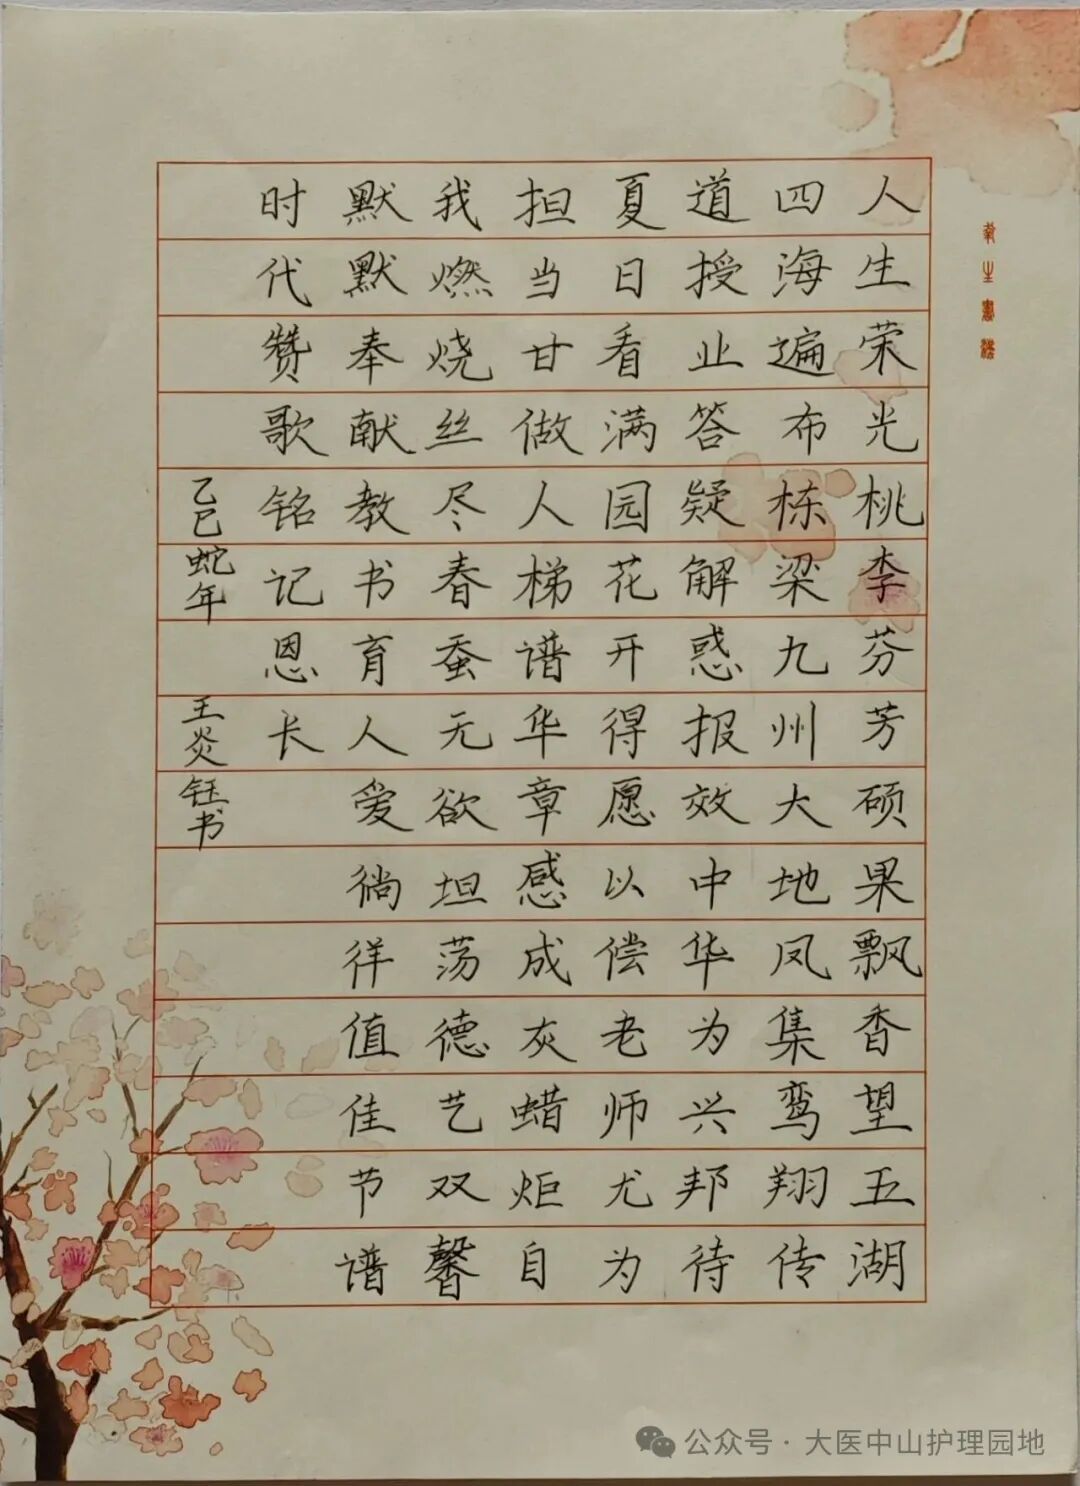 人生荣光桃李芬芳硕果飘香望五湖
四海遍布栋梁九州大地凤集鸾翔传
道授业答疑解惑报效中华为兴邦待
夏日看满园花开得愿以偿老师尤为
担当甘做人梯谱华章感成灰蜡炬自
我燃烧丝尽春蚕无欲坦荡德艺双馨
默默奉献教书育人爱徜徉值佳节谱
时代赞歌铭记恩长
乙巳蛇年
王炎钰书
公众号·大医中山护理园地